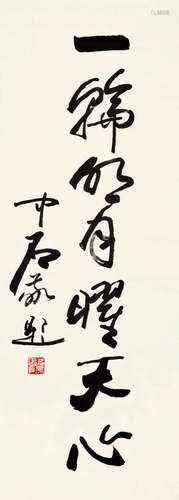 一輪明月曜天心
中石敬題